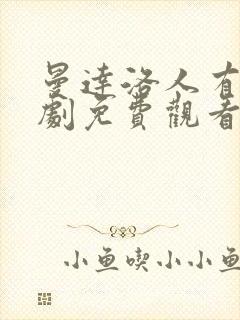 曼達洛人有
劇免費觀看
小魚喫小小魚